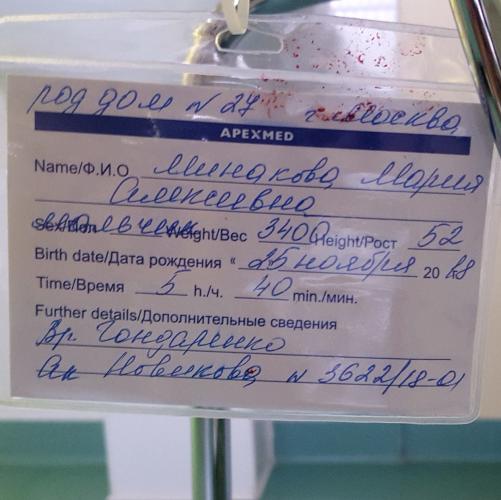 род дом N 27 г. Москва
APEXMED
Name/Ф.И.О Минакова Мария
Алексеевна
Sex/Пол мальчик Weight/Вес 3400 Height/Рост 52
Birth date/Дата рождения « 25 ноября 20 18
Time/Время 5 h./ч. 40 min./мин.
Further details/Дополнительные сведения
Вр. Гондаренко
Ак Новикова N 3622/18-01